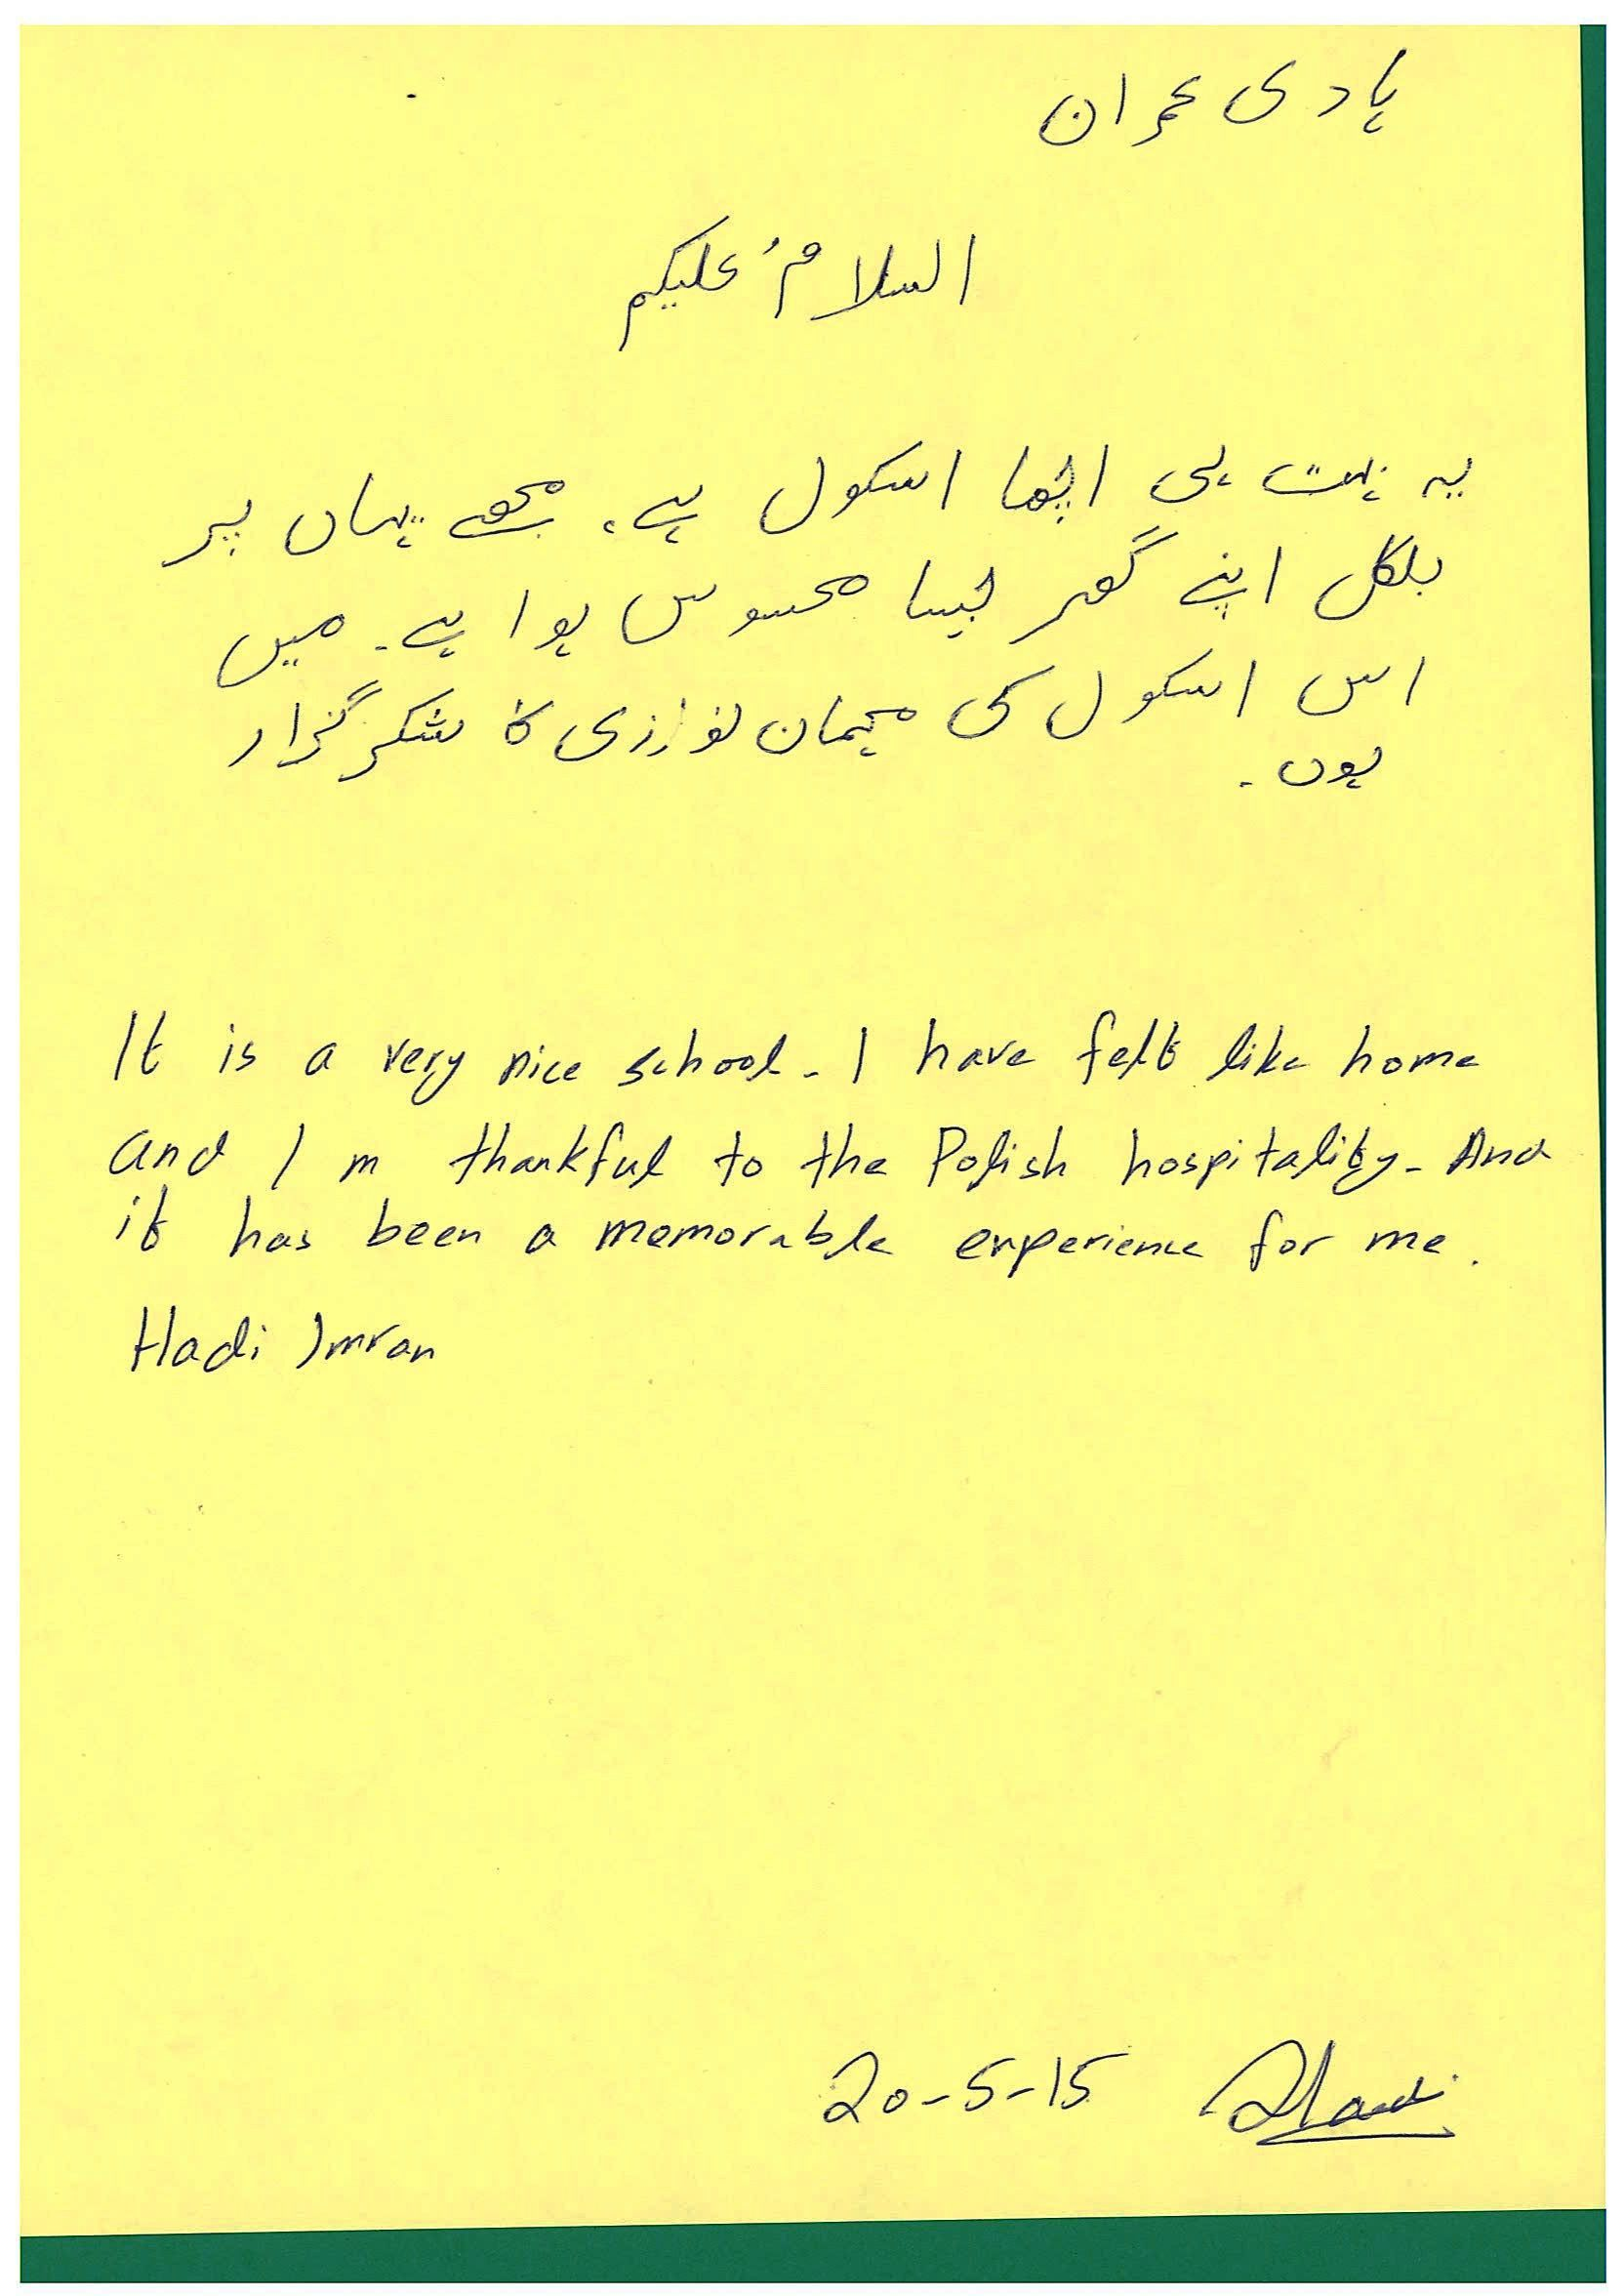 ہادی عمران
السلامُ علیکم
یہ بہت ہی اچھا اسکول ہے۔ مجھے یہاں پر
بلکل اپنے گھر جیسا محسوس ہوا ہے۔ میں
اس اسکول کی مہمان نوازی کا شکر گزار
ہوں۔
It is a very nice school. I have felt like home
and I m thankful to the Polish hospitality. And
it has been a memorable experience for me.
Hadi Imran
20-5-15 Hadi